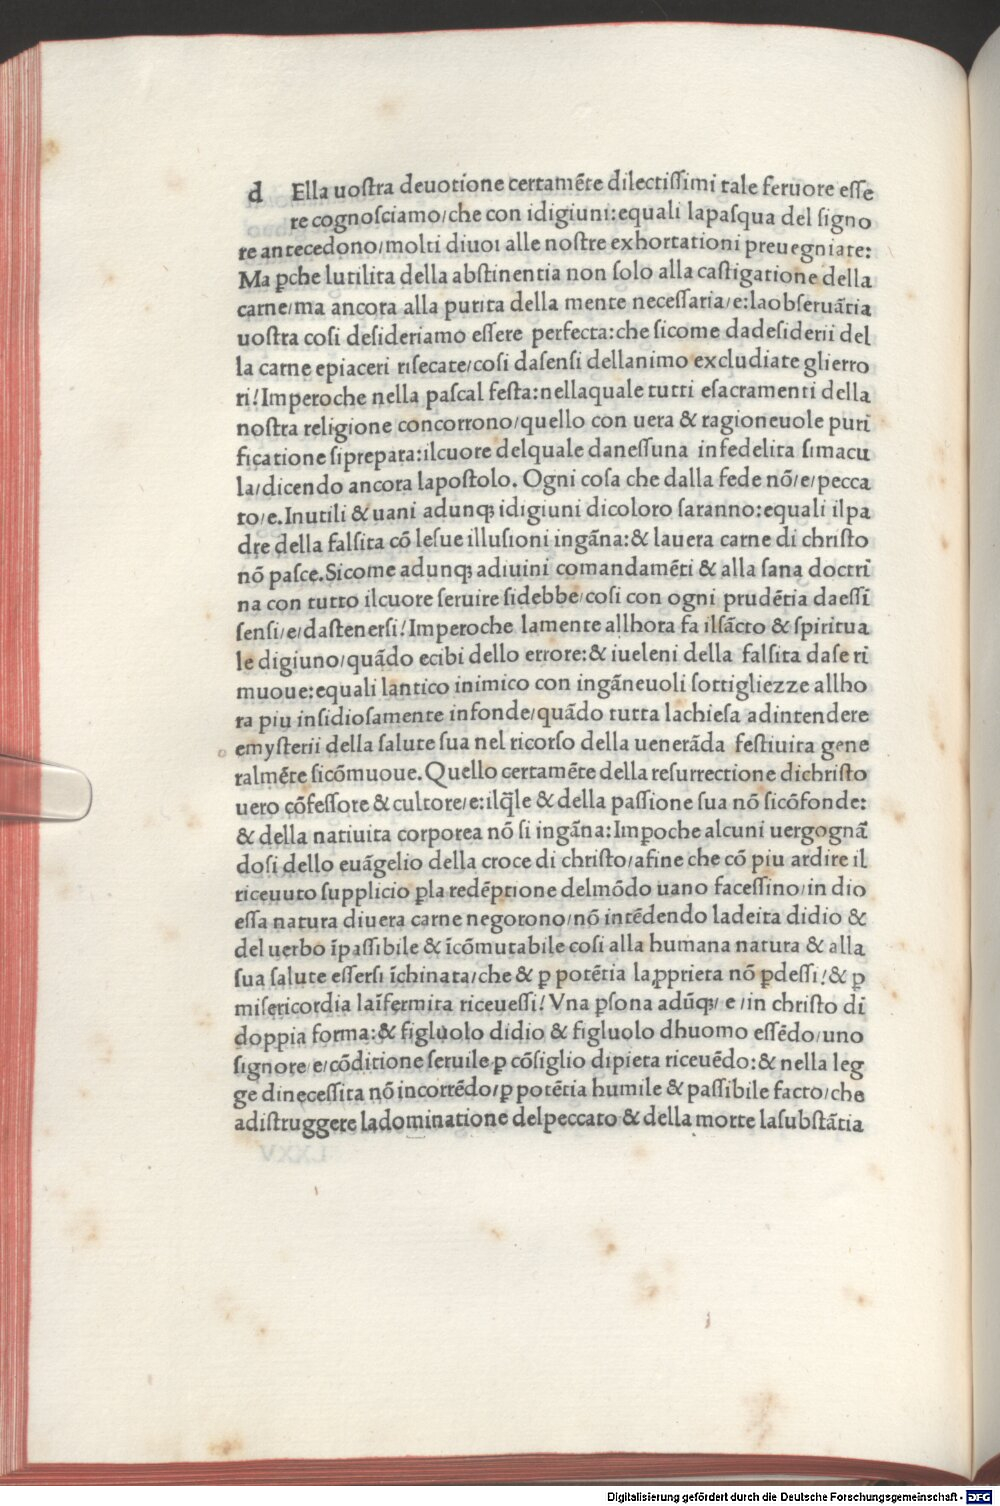 d Ella uoſtra deuotione certamēte dilectiſſimi tale feruore eſſe
re cognoſciamo/che con idigiuni:equali lapaſqua del ſigno
re antecedono/molti diuoi alle noſtre exhortationi preuegniate:
Ma ꝑche lutilita della abſtinentia non ſolo alla caſtigatione della
carne/ma ancora alla purita della mente neceſſaria/e:laobſeruātia
uoſtra coſi deſideriamo eſſere perfecta:che ſicome dadeſiderii del
la carne epiaceri riſecate/coſi daſenſi dellanimo excludiate glierro
ri!Imperoche nella paſcal feſta:nellaquale tutti eſacramenti della
noſtra religione concorrono/quello con uera & ragioneuole puri
ficatione ſiprepara:ilcuore delquale daneſſuna infedelita ſimacu
la/dicendo ancora lapoſtolo. Ogni coſa che dalla fede nō/e/pecca
to/e.Inutili & uani adunqꝫ idigiuni dicoloro ſaranno:equali ilpa
dre della falſita cō leſue illuſioni ingāna:& lauera carne di chriſto
nō paſce.Sicome adunqꝫ adiuini comandamēti & alla ſana doctri
na con tutto ilcuore ſeruire ſidebbe/coſi con ogni prudētia daeſſi
ſenſi/e/daſtenerſi!Imperoche lamente allhora fa ilſācto & ſpiritua
le digiuno/quādo ecibi dello errore:& iueleni della falſita daſe ri
muoue:equali lantico inimico con ingāneuoli ſottigliezze allho
ra piu inſidioſamente infonde/quādo tutta lachieſa adintendere
emyſterii della ſalute ſua nel ricorſo della uenerāda feſtiuita gene
ralmēte ſicōmuoue.Quello certamēte della reſurrectione dichriſto
uero cōfeſſore & cultore/e:ilq̄le & della paſſione ſua nō ſicōfonde:
& della natiuita corporea nō ſi ingāna:Imꝑoche alcuni uergognā
doſi dello euāgelio della croce di chriſto/afine che cō piu ardire il
riceuuto ſupplicio ꝑla redēptione delmōdo uano faceſſino/in dio
eſſa natura diuera carne negorono/nō intēdendo ladeita didio &
del uerbo īpaſſibile & īcōmutabile coſi alla humana natura & alla
ſua ſalute eſſerſi īchinata/che & ꝑ potētia laꝓprieta nō ꝑdeſſi!& ꝑ
miſericordia laīfermita riceueſſi!Vna ꝑſona adūqꝫ/ e /in chriſto di
doppia forma:& figluolo didio & figluolo dhuomo eſſēdo/uno
ſignore/e/cōditione ſeruile ꝑ cōſiglio dipieta riceuēdo:& nella leg
ge dineceſſita nō incorrēdo/ꝑ potētia humile & paſſibile facto/che
adiſtruggere ladominatione delpeccato & della morte laſubſtātia
Digitalisierung gefördert durch die Deutsche Forschungsgemeinschaft - DFG